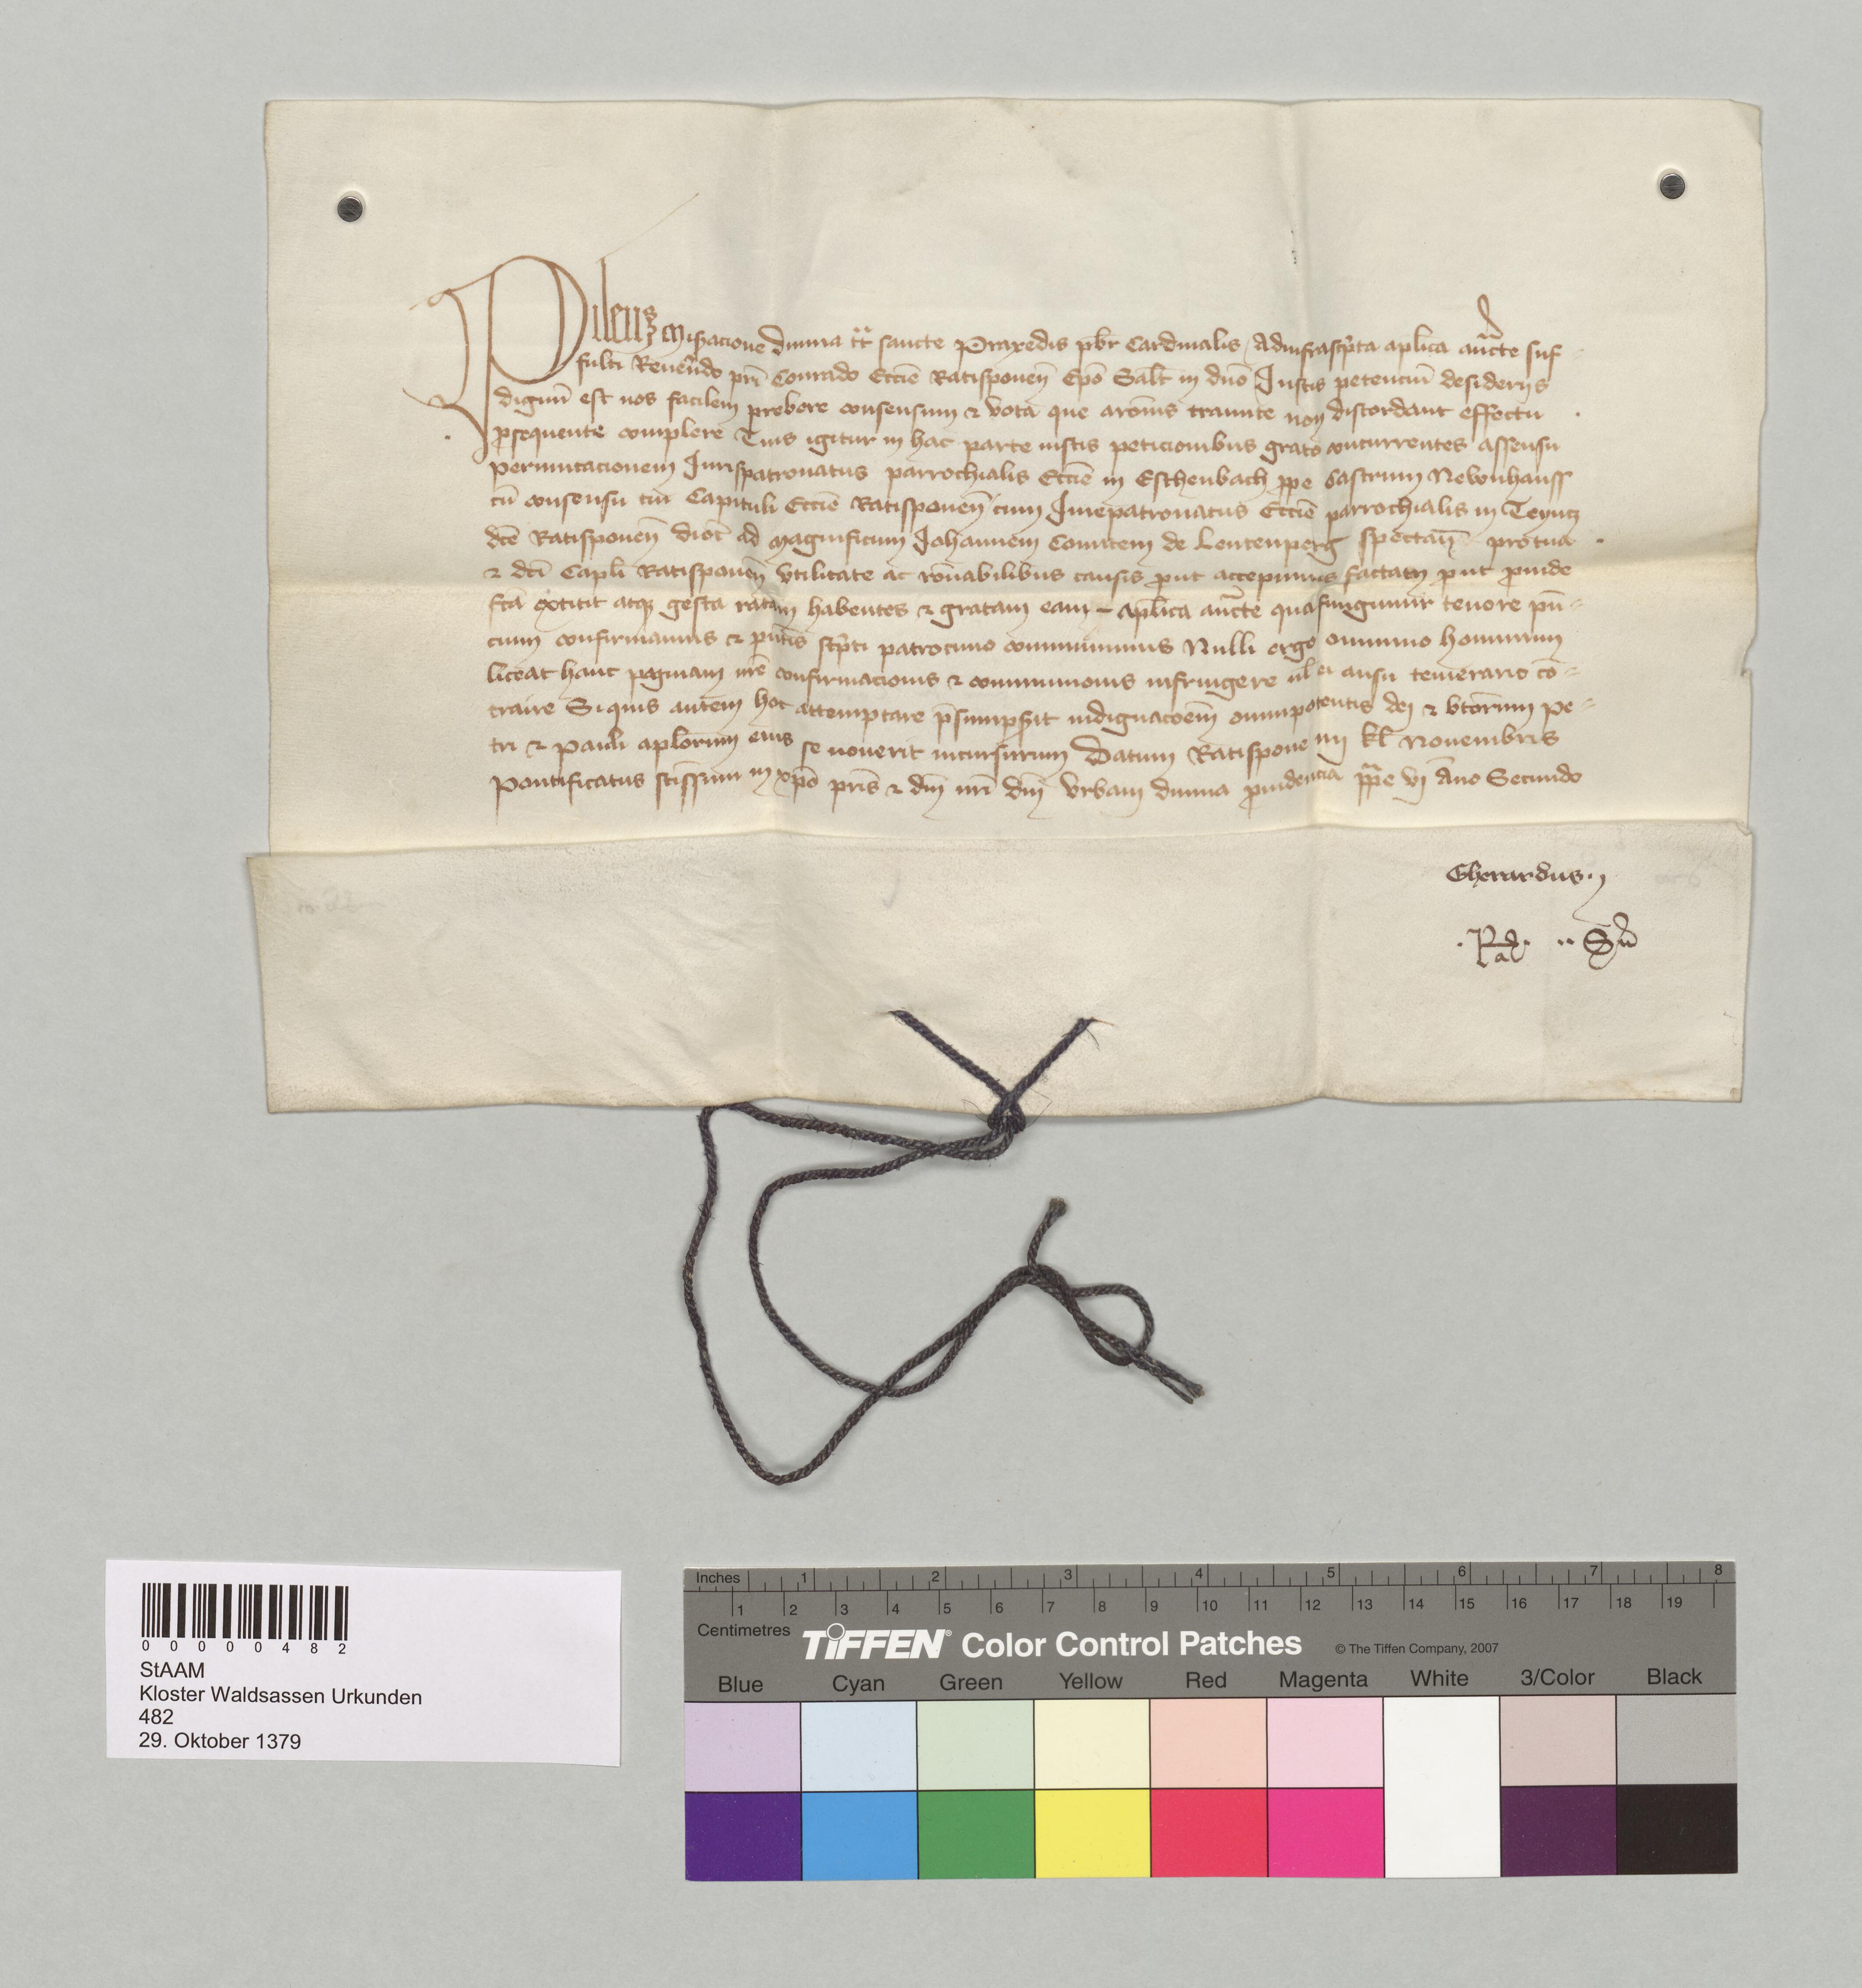 Pileus Mis̄acione diuina tt̄ sancte Praxedis pb̄r Cardinalis, Ad infrasc̄pta ap̄lica auc̄te suf
fulti Reuēndo pr̄i Conrado Ecc̄ie Ratisponeñ Ep̄o Sal̄t in dn̄o Iustis petenciū desiderijs
dignū est nos facilem prebere consensum ⁊ vota que arōnis tramite non discordant effectu
ꝓsequente complere Tuis igitur in hac parte iustis peticionibus grato concurrentes assensu
permutacionem Iurispatronatus parrochialis Ecc̄ie in Eschenbach ꝓpe Castrum Newnhauss
cū consensu tui Capituli Ecc̄ie Ratisponeñ cum Iurepatronatus Ecc̄ie parrochialis in Teyncz
dc̄e Ratisponeñ dioc̄ ad magnificum Iohannem Comitem de Leutenperg spectañ pro tua
⁊ dc̄i Capl̄i Ratisponeñ vtilitate ac rōnabilibus causis put accepimus factam put ꝓuide
fc̄a extitit atqꝫ gesta ratam habentes ⁊ gratam eam ap̄lica auc̄te qua fungimur tenore pn̄-
cium confirmamus ⁊ pn̄tis sc̄pti patrocinio communimus Nulli ergo omnino hominum
liceat hanc paginam nr̄e confirmacionis ⁊ communionis infringere ul̄ ei ausu temerario cō-
traire Siquis autem hoc attemptare p̄sumpserit indignacōem omnipotentis dei ⁊ btōrum Pe-
tri ⁊ Pauli apl̄orum eius se nouerit incursurum Datum Ratispone iiij kl̄ Nouembris
Pontificatus sc̄issimi in xp̄o pr̄is ⁊ dn̄i nr̄i dn̄i Vrbani diuina ꝓuidencia pp̄e vj Anno Secundo
Gherardus
0 0 0 0 0 4 8 2
StAAM
Kloster Waldsassen Urkunden
482
29. Oktober 1379
Inches 1 2 3 4 5 6 7 8
1 2 3 4 5 6 7 8 9 10 11 12 13 14 15 16 17 18 19
Centimetres
TIFFEN® Color Control Patches © The Tiffen Company, 2007
Blue Cyan Green Yellow Red Magenta White 3/Color Black